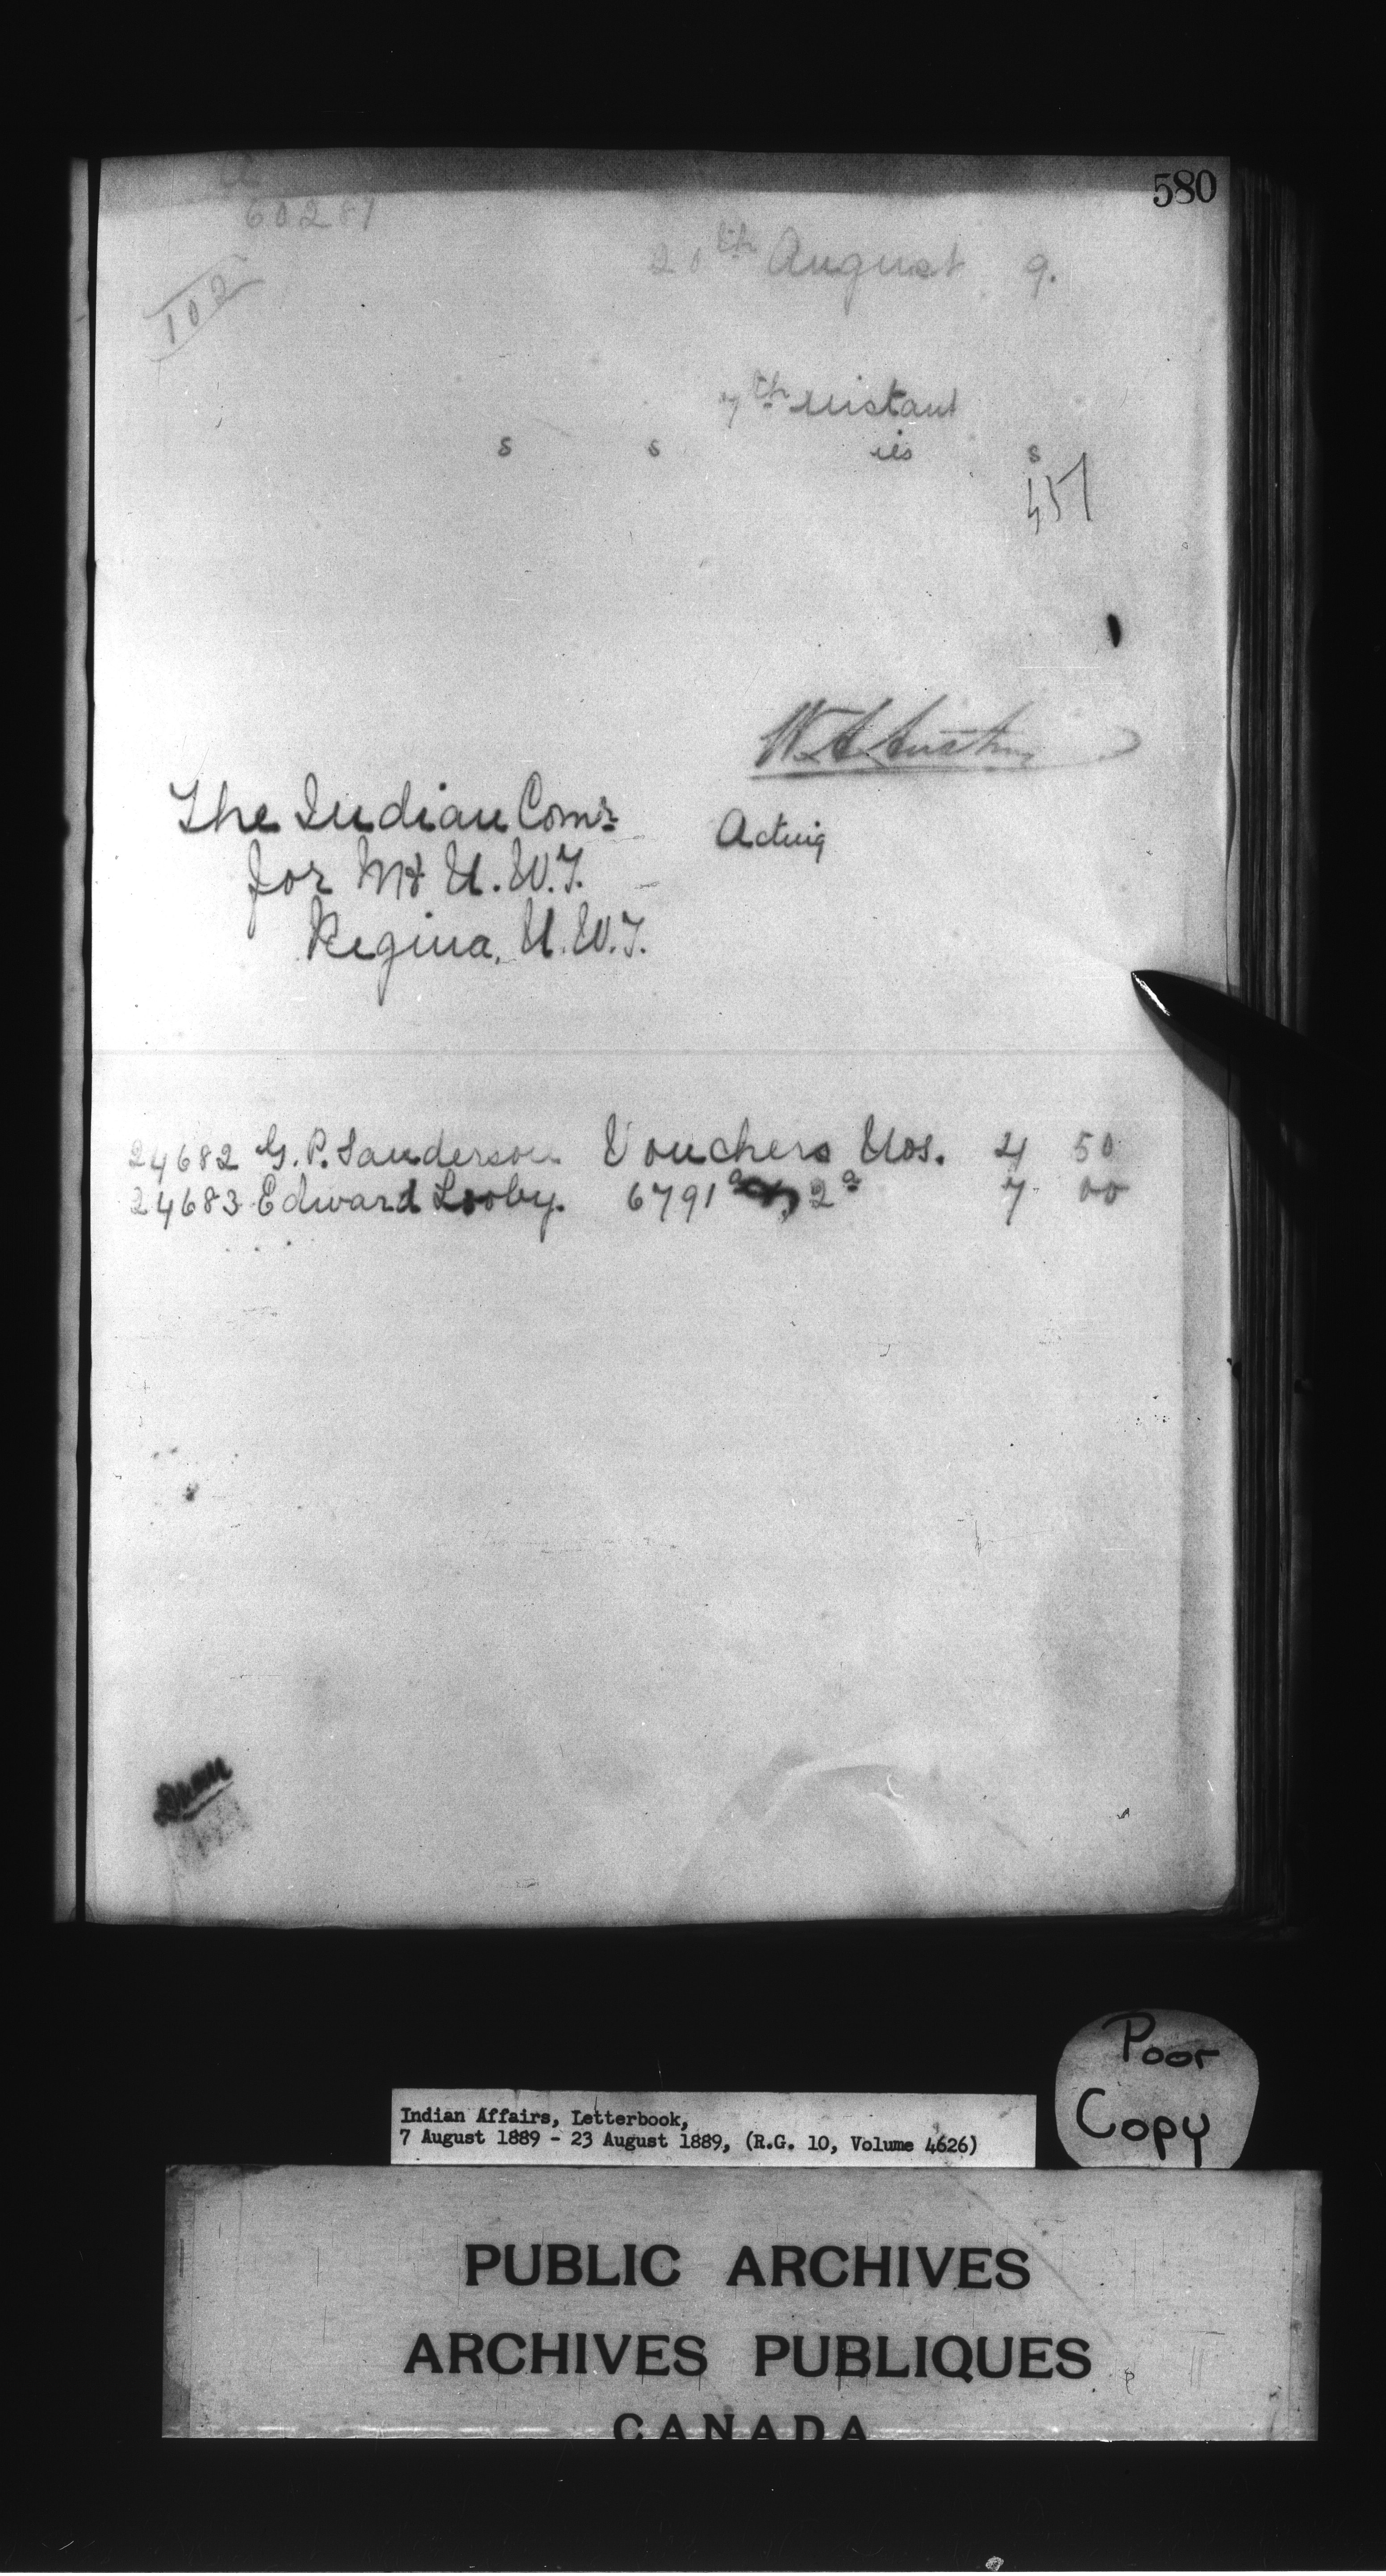 580
60287
20th August 9.
102
7th instant
s s ies s
457
W A Austin
The Indian Comr
Acting
for M& N.W.T.
Regina, N.W.T.
24682 G. P. Sanderson Vouchers Nos. 4 50
24683 Edward Looby. 6791a 2a 7 00
Poor
Copy
Indian Affairs, Letterbook,
7 August 1889 - 23 August 1889, (R.G. 10, Volume 4626)
PUBLIC ARCHIVES
ARCHIVES PUBLIQUES
CANADA